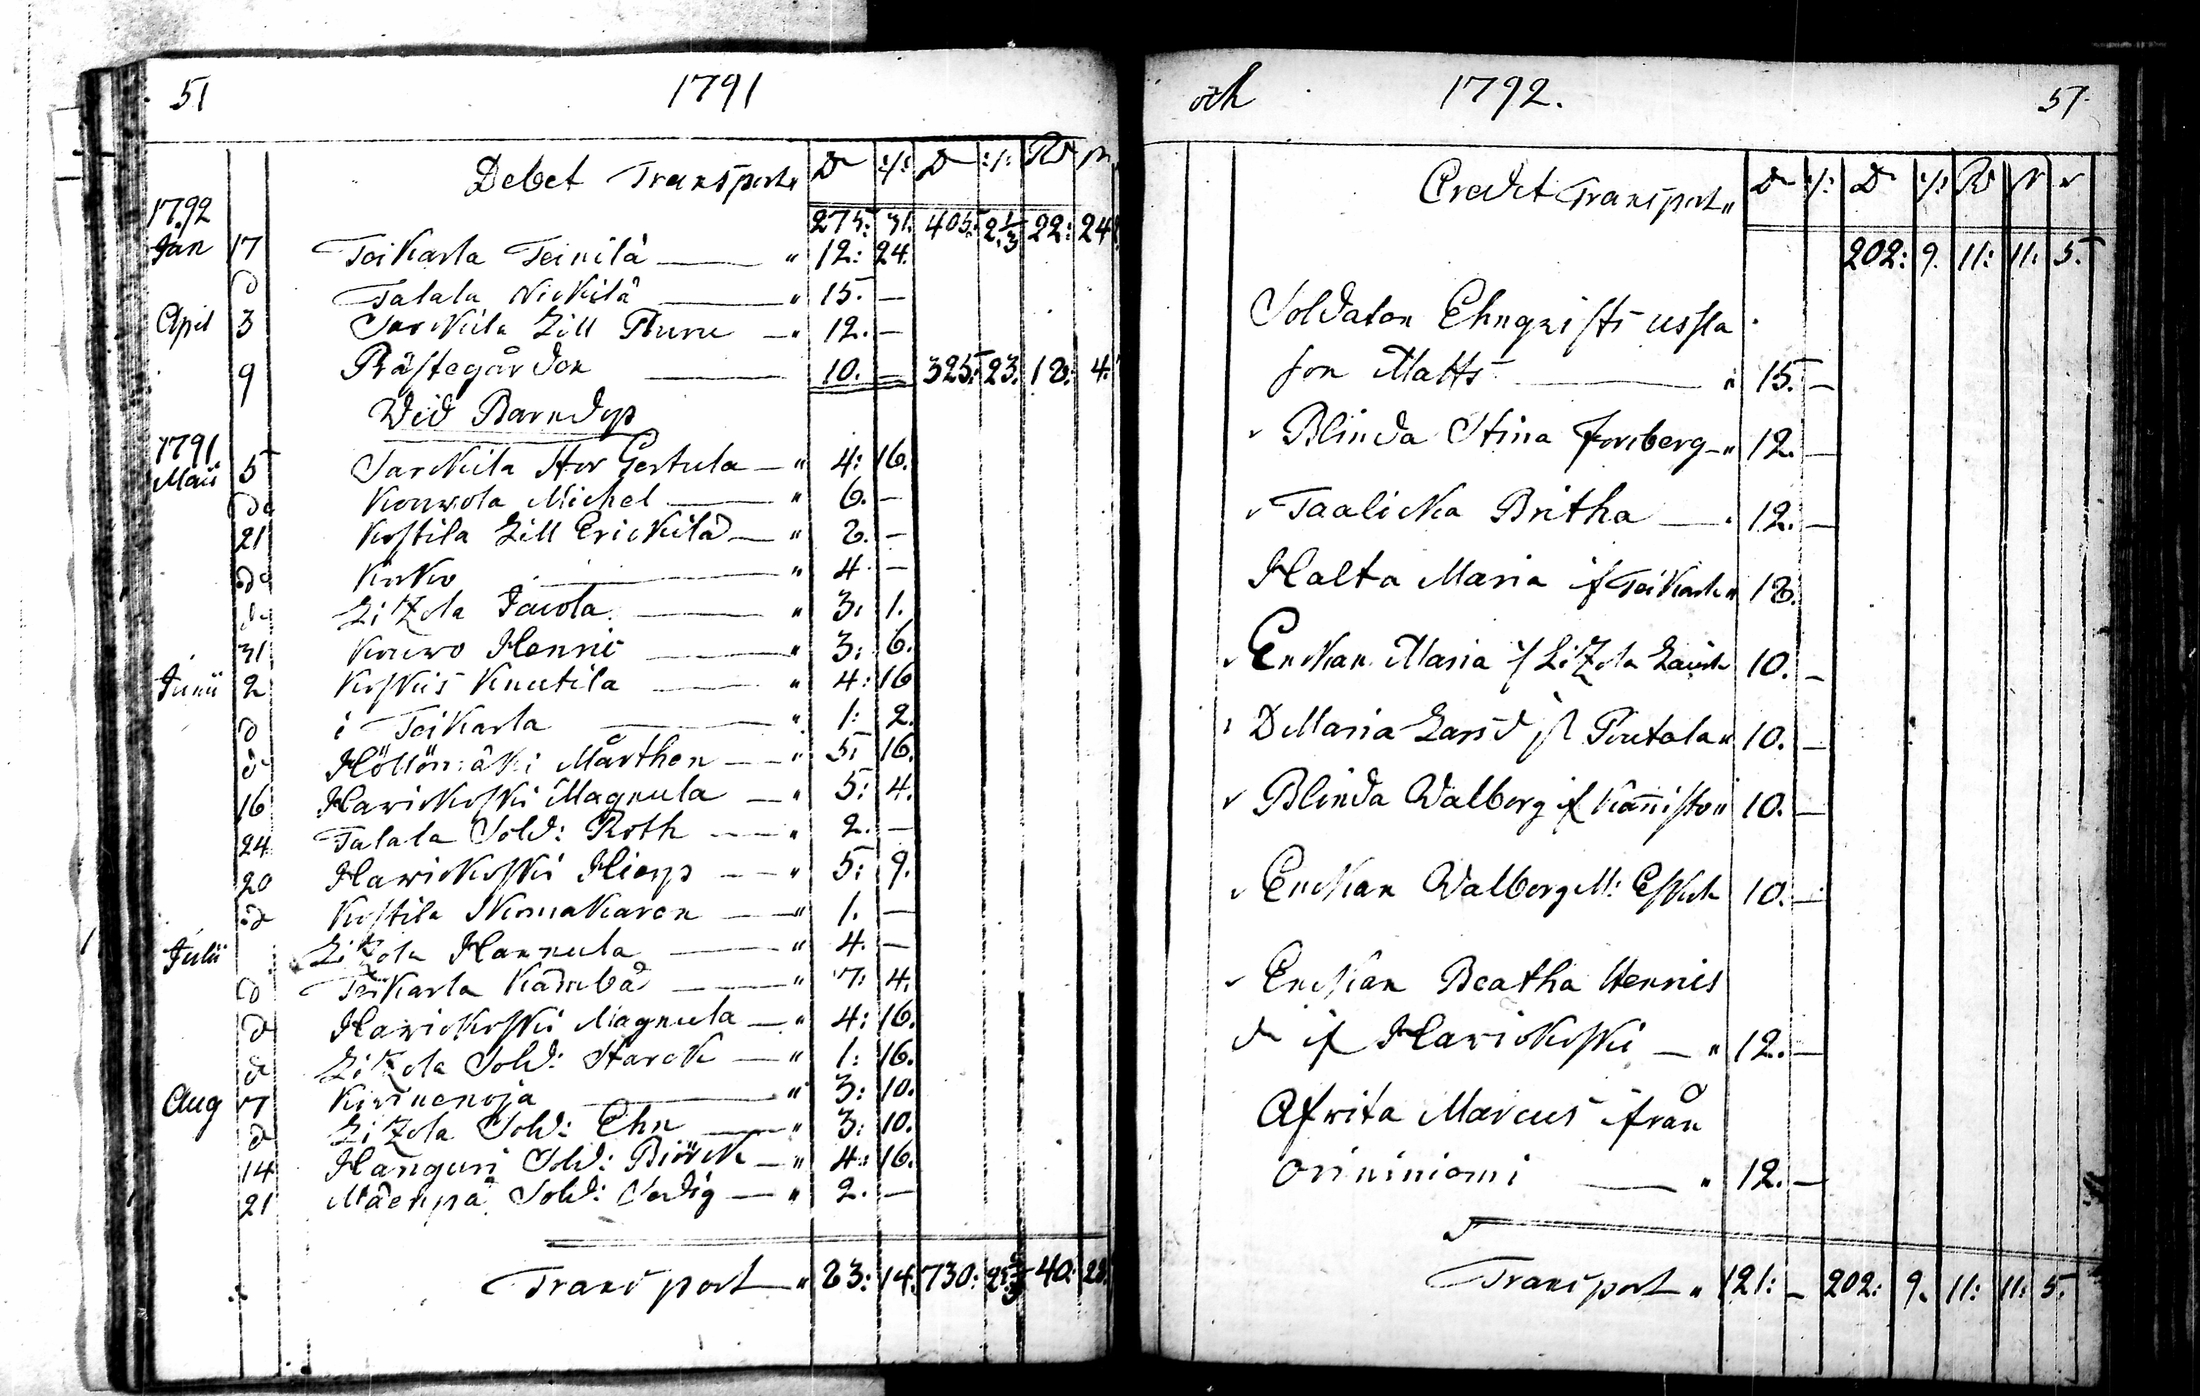 51 1791
Debet Transport D :/: D :/: Rd
1792 275: 31. 405: 2 1/3 22: 24
Jan 17 Toikarla Teinilä " 12: 24.
d Talala Nickilä " 15. —
Apil 3 Jackula Lill " 12. —
9 Prästegården 10. — 325: 23. 18: 4.
Wid Barndop
1791
Maii 5 Jackula Stor Gertula " 4: 16.
do Kouwola Michel " 6. —
21 Kostila Lill Erickilä " 8. —
do Kocko " 4 —
d Litzola Jacola " 3. 1.
31 Kouwo Henric " 3: 6.
Junii 2 Koskis Knutila " 4: 16
d i Toikarla " 1: 2.
d Höllönmäki Mårthen " 5: 16.
16 Hawickoski Magnula " 5: 4.
24 Talala Sold: Roth " 2. —
20 Hawickoski Hierp " 5: 9.
d Kostila Skomakaren " 1. —
Julii Litzola Hannula " 4. —
d Toikarla " 7: 4.
d Hawickoski Magnula " 4: 16.
d Litzola Sold: Starck " 1: 16.
Aug 7 Kivinenoja " 3: 10.
d Litzola Sold: Ehn " 3: 10.
14 Hanguri Sold: Biörck " 4: 16.
21 Mäenpä Sold: " 2. —
Transport " 83: 14. 730: 40: 28.
och 1792. 51
Credit Transport " D :/: D :/: Rd
202: 9. 11: 11. 5.
Soldaten Ehnqvists ussla
son Matts " 15. —
Blinda Stina Forsberg " 12. —
Taalicka Britha 12. —
Halta Maria if Toikarla " 18.
Enckan Maria if Litzola 10. —
D Maria Larsd if Pentala " 10. —
Blinda Walborg if Känisto " 10. —
Enckan Walborg M: 10. —
Enckan Beatha Henrics
dr if Hawickoski " 12. —
Afwita Marcus ifrån
Orininiomi " 12. —
Transport " 121: — 202: 9. 11: 11: 5.